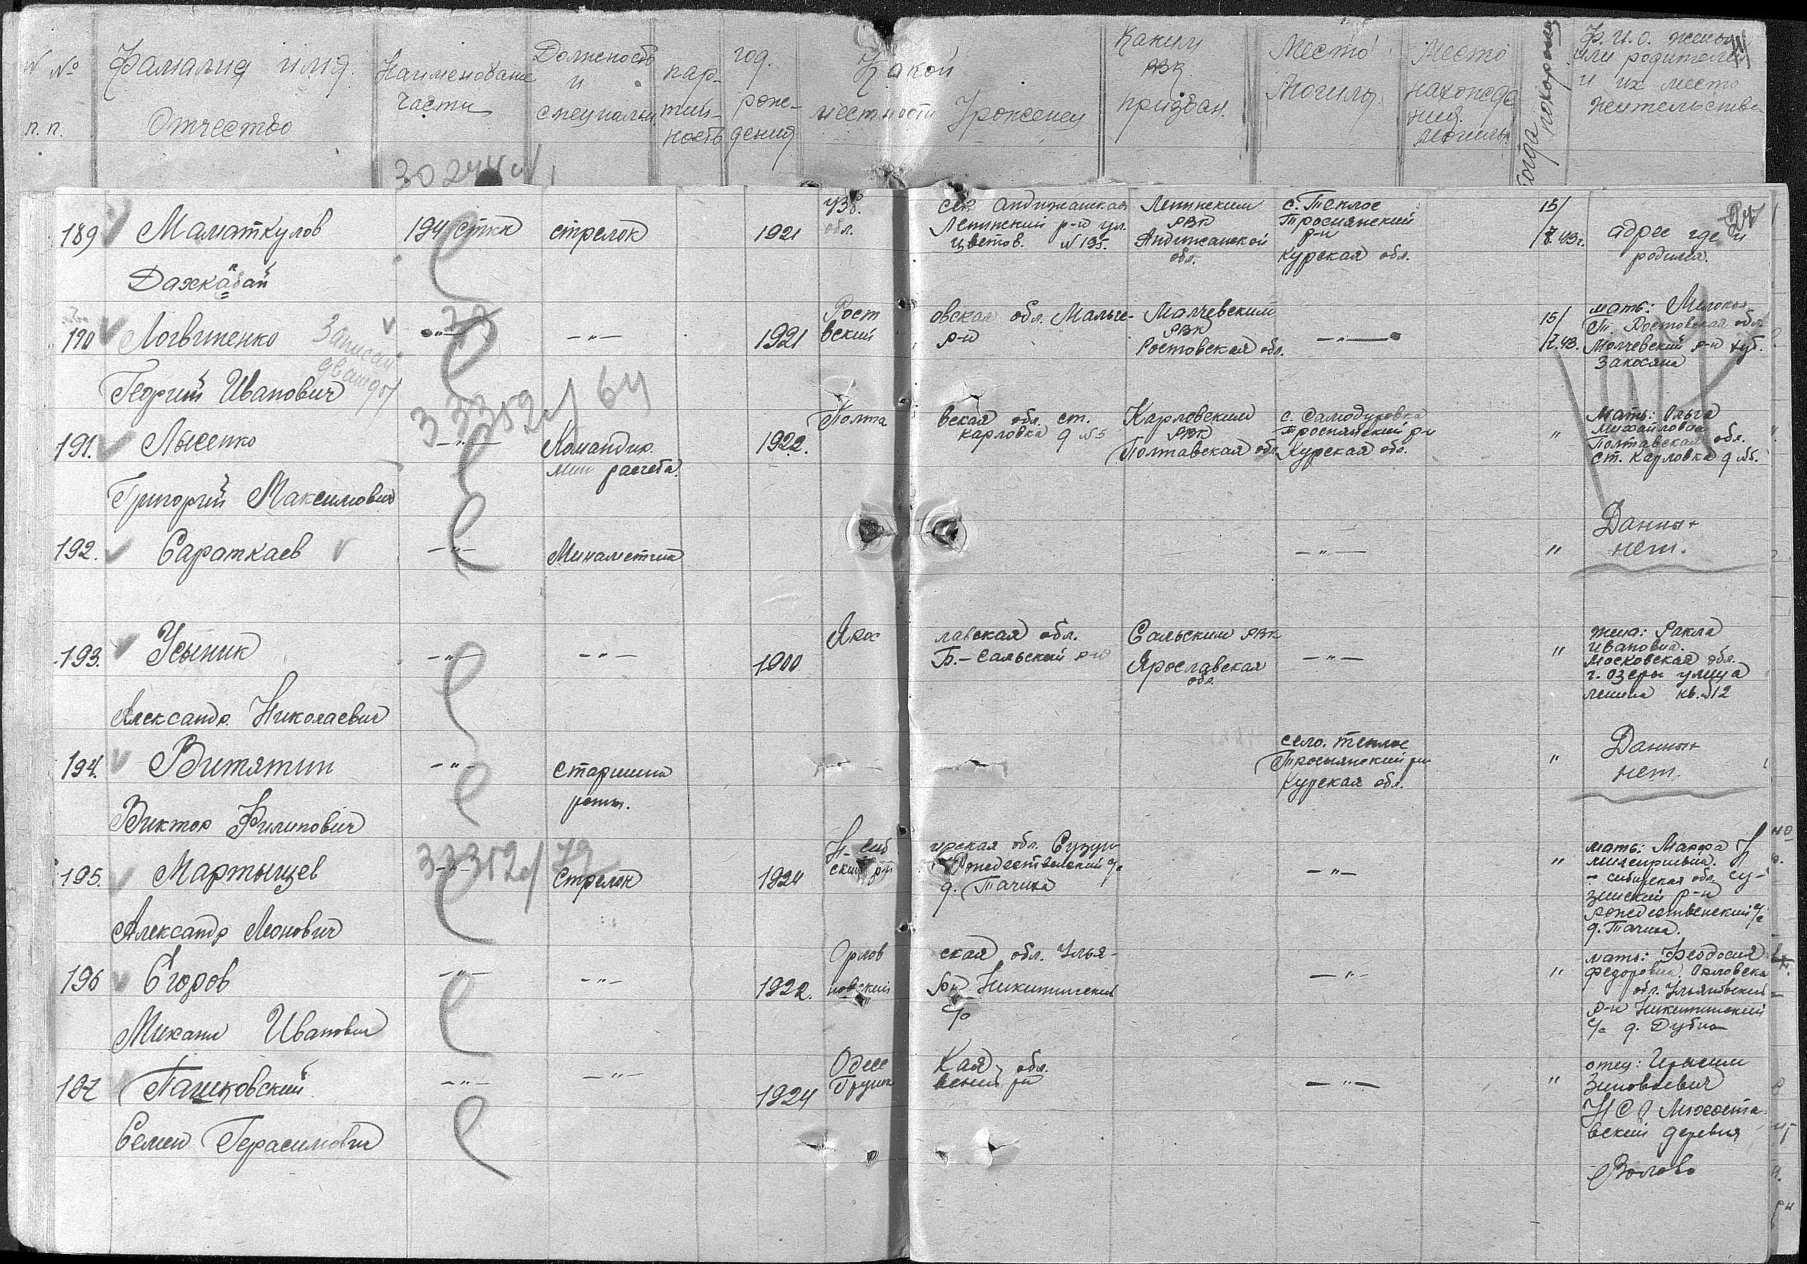 № №
п.п.
Фамилия имя
Отчество
Наименование
части
Должность
и
специальн.
пар-
тий-
ность
год
рож-
дения
Какой
местности Уроженец
Каким
РВК
призван.
Место
Могилы
Место
нахожде
ния
могилы
Когда похоронен
Ф.И.О. жены
или родителей
и их место
жительства
189 Маматкулов
Дажкабай
194 сткп
стрелок
1921
Узб.
обл.
Андижанская
Ленинский р-н ул.
Цветов. № 195.
Ленинским
РВК
Андижанской
обл.
с. Теплое
Троснянский
р-н
Курская обл.
15/
7.43г.
адрес где и
родился.
190 Логвиненко
Георгий Иванович
Записан
дважды
— " —
— " —
1921
Ростовская обл. Мальче-
вский р-н
Мальчевским
РВК
Ростовской обл.
— " —
15/
7.43.
мать:
Ростовская обл.
Мальчевский р-н хут.
191. Лысенко
Григорий Максимович
33352 64
— " —
Командир
мин расчета
1922.
Полтавская обл. ст.
Карловка д №5
Карловским
РВК
Полтавская обл
с. Самодуровка
Троснянский р-н
Курская обл.
"
Мать: Ольга
Михайловна
Полтавская обл.
ст. Карловка д №5.
192. Сараткаев
— " —
Минометчик
— " —
"
Данных
нет.
193. Усыник
Александр Николаевич
— " —
— " —
1900
Ярославская обл.
Б.-Сальский р-н
Сальским РВК
Ярославская
обл.
— " —
"
жена: Ракла
Ивановна.
Московская обл.
г. Озеры улица
Ленина кв. 12
194. Витятин
Виктор Филипович
— " —
старшина
роты.
село. Теплое
Троснянский р-н
Курская обл.
"
Данных
нет.
195. Мартыщев
Александр Леонович
33352
— " —
Стрелок
1924
Н-Сибирская обл. Сузун-
ский р-н Рождественский с/с
д. Тачина
— " —
"
мать: Марфа
сибирская обл. Су-
зунский р-н
рождественский с/с
д. Тачина.
196 Егоров
Михаил Иванович
— " —
— " —
1922.
Орловская обл. Улья-
новский р-н Никитинский
с/с
— " —
"
мать: Феодосия
Федоровна Орловская
обл. Ульяновский
р-н Никитинский
с/с д. Дубна
197 Пашковский
Семен Герасимович
— " —
— " —
1924
Одесская обл.
— " —
"
отец:
Зиновьевич
деревня
Волово